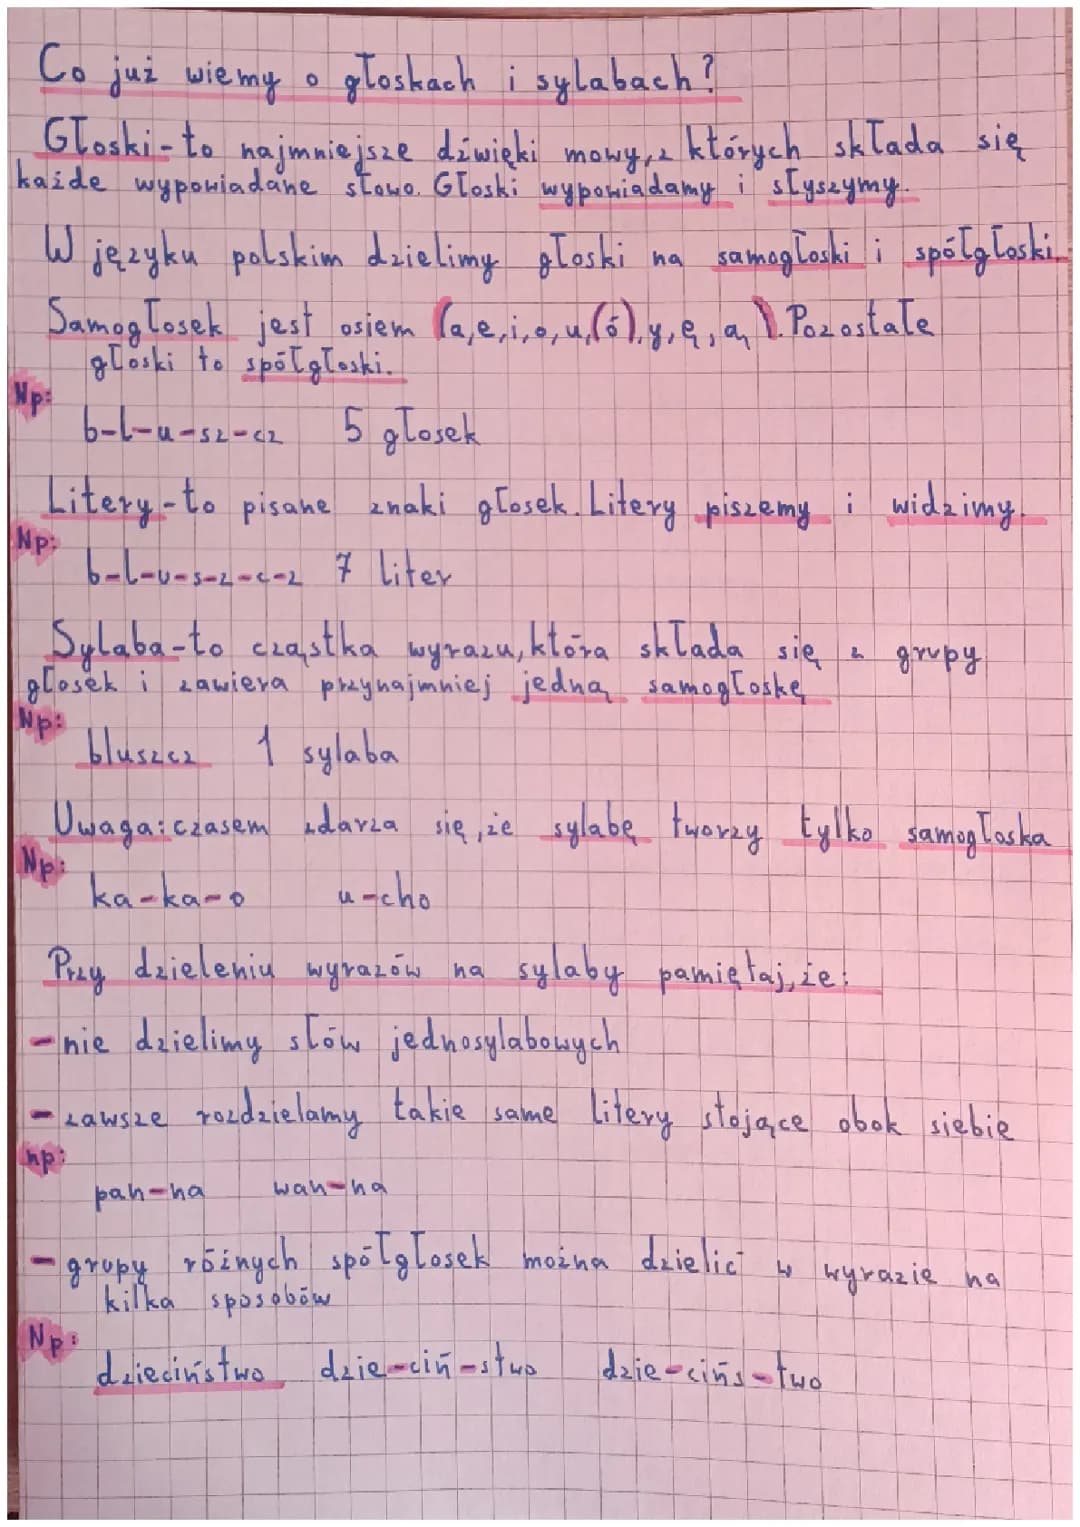 Co już wiemy o głoskach i sylabach?
Głoski-to najmniejsze dźwięki mowy, z których składa się
każde wypowiadane słowo. Głoski wypowiadamy i słyszymy.
W języku polskim dzielimy głoski na samogłoski i spółgłoski.
Samogłosek jest osiem (a,e,i,o,u,(ó),y,ę,ą). Pozostałe
głoski to spółgłoski.
Np:
b-l-u-sz-cz 5 głosek
Litery-to pisane znaki głosek. Litery piszemy i widzimy.
Np:
b-l-u-s-z-c-z 7 liter
Sylaba-to cząstka wyrazu, która składa się z grupy
głosek i zawiera przynajmniej jedną samogłoskę
Np:
bluszcz 1 sylaba
Uwaga: czasem zdarza się, że sylabę tworzy tylko samogłoska
Np:
ka-ka-o u-cho
Przy dzieleniu wyrazów na sylaby pamiętaj, że:
-nie dzielimy słów jednosylabowych
-zawsze rozdzielamy takie same litery stojące obok siebie
np:
pan-na wan-na
-grupy różnych spółgłosek można dzielić w wyrazie na
kilka sposobów
Np:
dzieciństwo dzie-ciń-stwo dzie-cińs-two